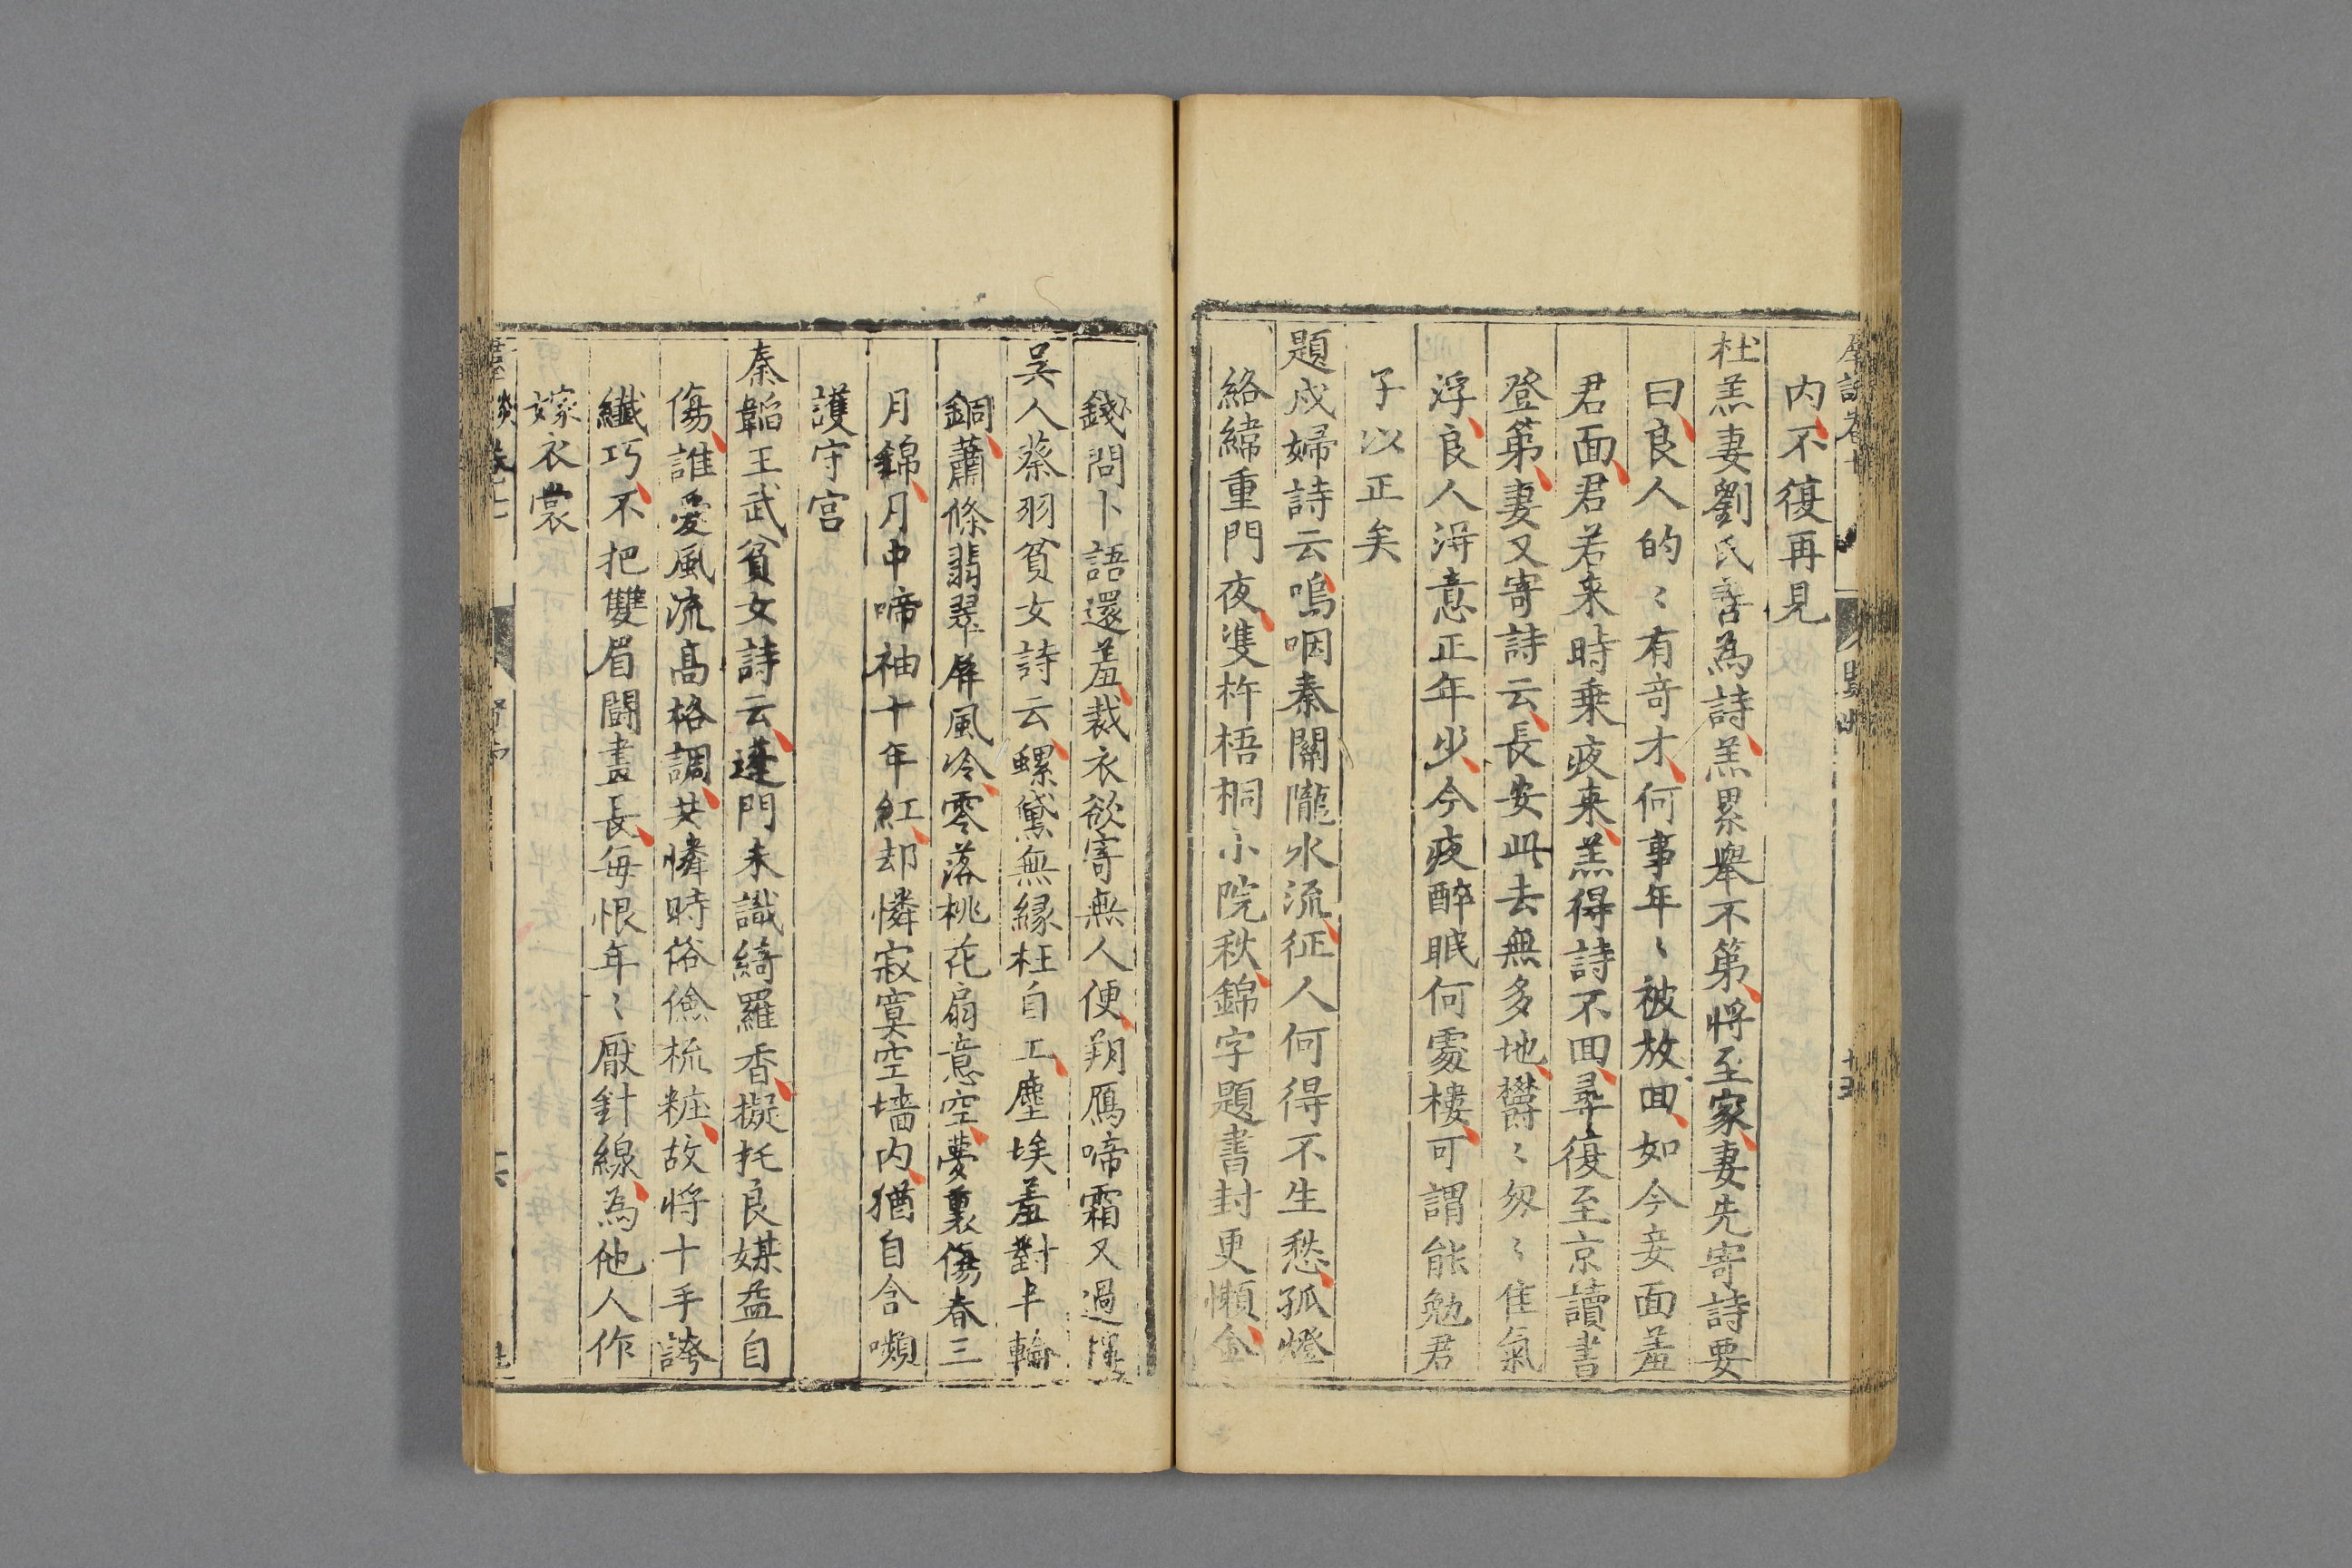 内不復再見
杜羔妻劉氏善為詩羔累舉不第將至家妻先寄詩要
曰良人的〻有奇才何事年〻被放回如今妾面羞
君面君若来時乗夜来羔得詩不回尋復至京讀書
登第妻又寄詩云長安此去無多地欝〻匆〻隹氣
浮良人淂意正年少今夜醉眠何處樓可謂能勉君
子以正矣
題戍婦詩云嗚咽秦關隴水流征人何得不生愁孤燈
絡緯重門夜隻杵梧桐小院秋錦字題書封更懶金
錢問卜語還羞裁衣欲寄無人便朔鴈啼霜又過樓
吳人蔡羽貧女詩云螺黛無緣枉自工塵埃羞對半輪
銅蕭條翡翠屏風冷零落桃花扇意空夢裏傷春三
月錦月中啼袖十年紅却憐寂寞空墻内猶自含嚬
護守宫
秦韜王武貧女詩云蓬門未識綺羅香擬托良媒益自
傷誰愛風流高格調共憐時俗儉梳粧故將十手誇
纖巧不把雙眉鬪畫長每恨年〻厭針線為他人作
嫁衣裳